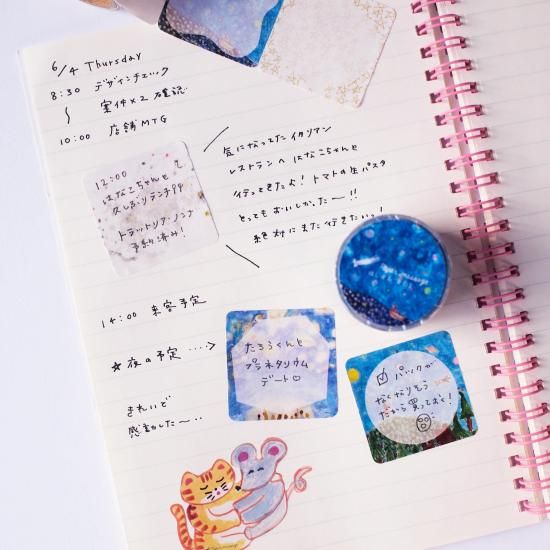 6/4 Thursday
8:30 デザインチェック
〜
案件×2 確認
10:00 店舗MTG
12:00
はなこちゃんと
久しぶりランチ♪♪
トラットリア・ノンナ
予約済み!
気になってたイタリアン
レストランへ はなこちゃんと
行ってきたよ! トマトの生パスタ
とってもおいしかったー!!
絶対にまた行きたいっ!
14:00 来客予定
☆夜の予定 ····>
たろうくんと
プラネタリウム
デート♡
きれいで
感動したー··
☑ パックが
なくなりそう
だから買っておく!